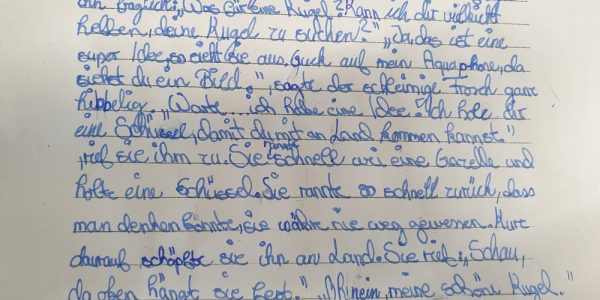 ihn fraglich: „Was für eine Kugel? Kann ich dir vielleicht
helfen, deine Kugel zu suchen?" „Ja, das ist eine
super Idee, so sieht sie aus. Guck auf mein Aquaphone, da
siehst du ein Bild.", sagte der schleimige Frosch ganz
hibbelig. „Warte... ich habe eine Idee. Ich hole dir
eine Schüssel, damit du mit an Land kommen kannst."
, rief sie ihm zu. Sie rannte schnell wie eine Gazelle und
holte eine Schüssel. Sie rannte so schnell zurück, dass
man denken könnte, sie währe nie weg gewesen. Kurz
darauf schöpfte sie ihn an Land. Sie rief: „Schau,
da oben hängt sie fest." „Oh nein, meine schöne Kugel."